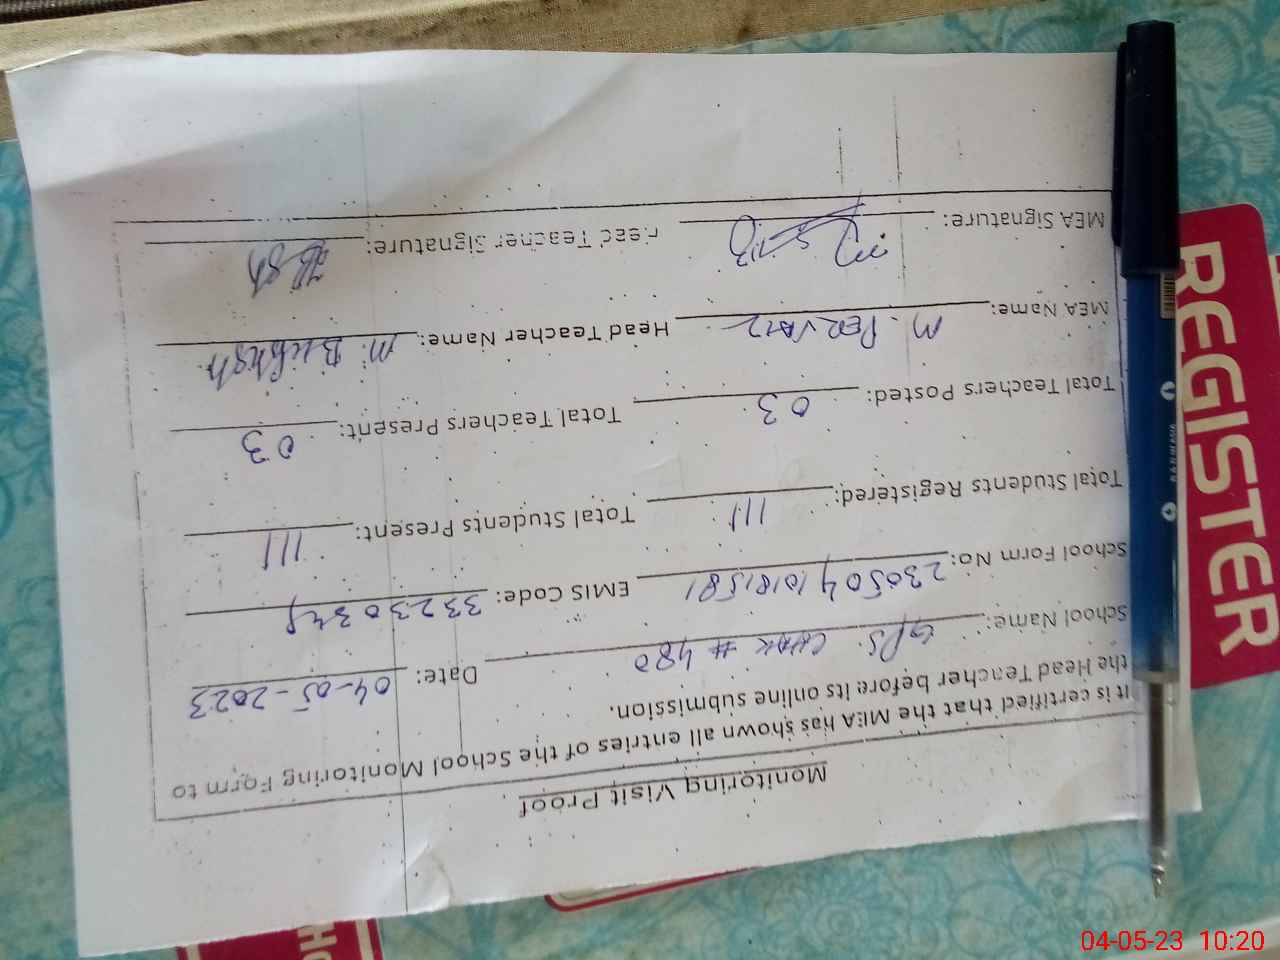 Monitoring Visit Proof
It is certified that the MEA has shown all entries of the School Monitoring Form to
the Head Teacher before its online submission.
School Name: GPS. CHAK # 480 Date: 04-05-2023
School Form No: 23050410181581 EMIS Code: 33230348
Total Students Registered: 111 Total Students Present: 111
Total Teachers Posted: 03 Total Teachers Present: 03
MEA Name: M. PERVAIZ Head Teacher Name: M. Bukhsh
MEA Signature: Head Teacher Signature:
REGISTER
04-05-23 10:20